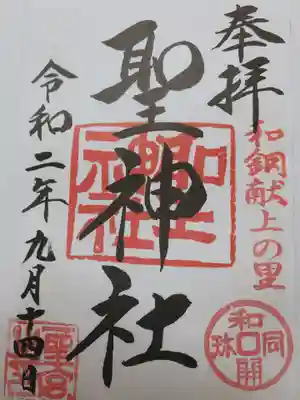 奉拝
和銅献上の里
聖神社
令和二年九月十四日
和同開珎